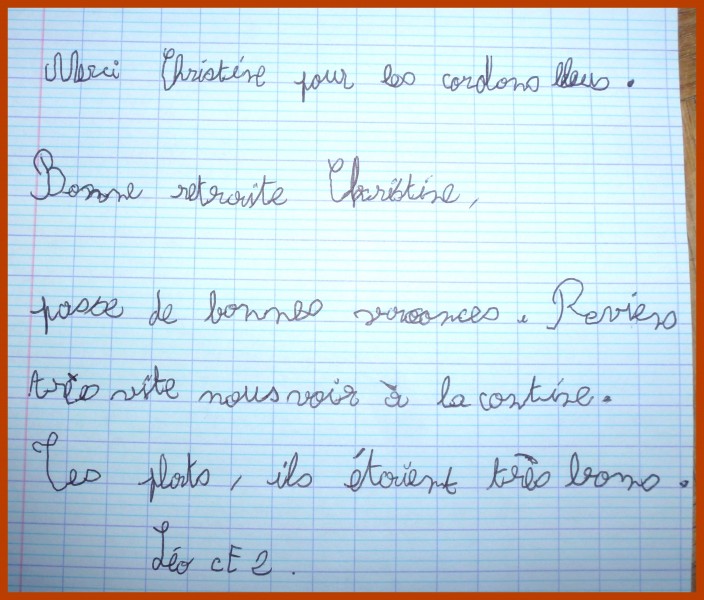 Merci Christine pour les cordons bleus.
Bonne retraite Christine,
passe de bonnes vacances. Reviens
très vite nous voir à la cantine.
Tes plats, ils étaient très bons.
Léo CE2.